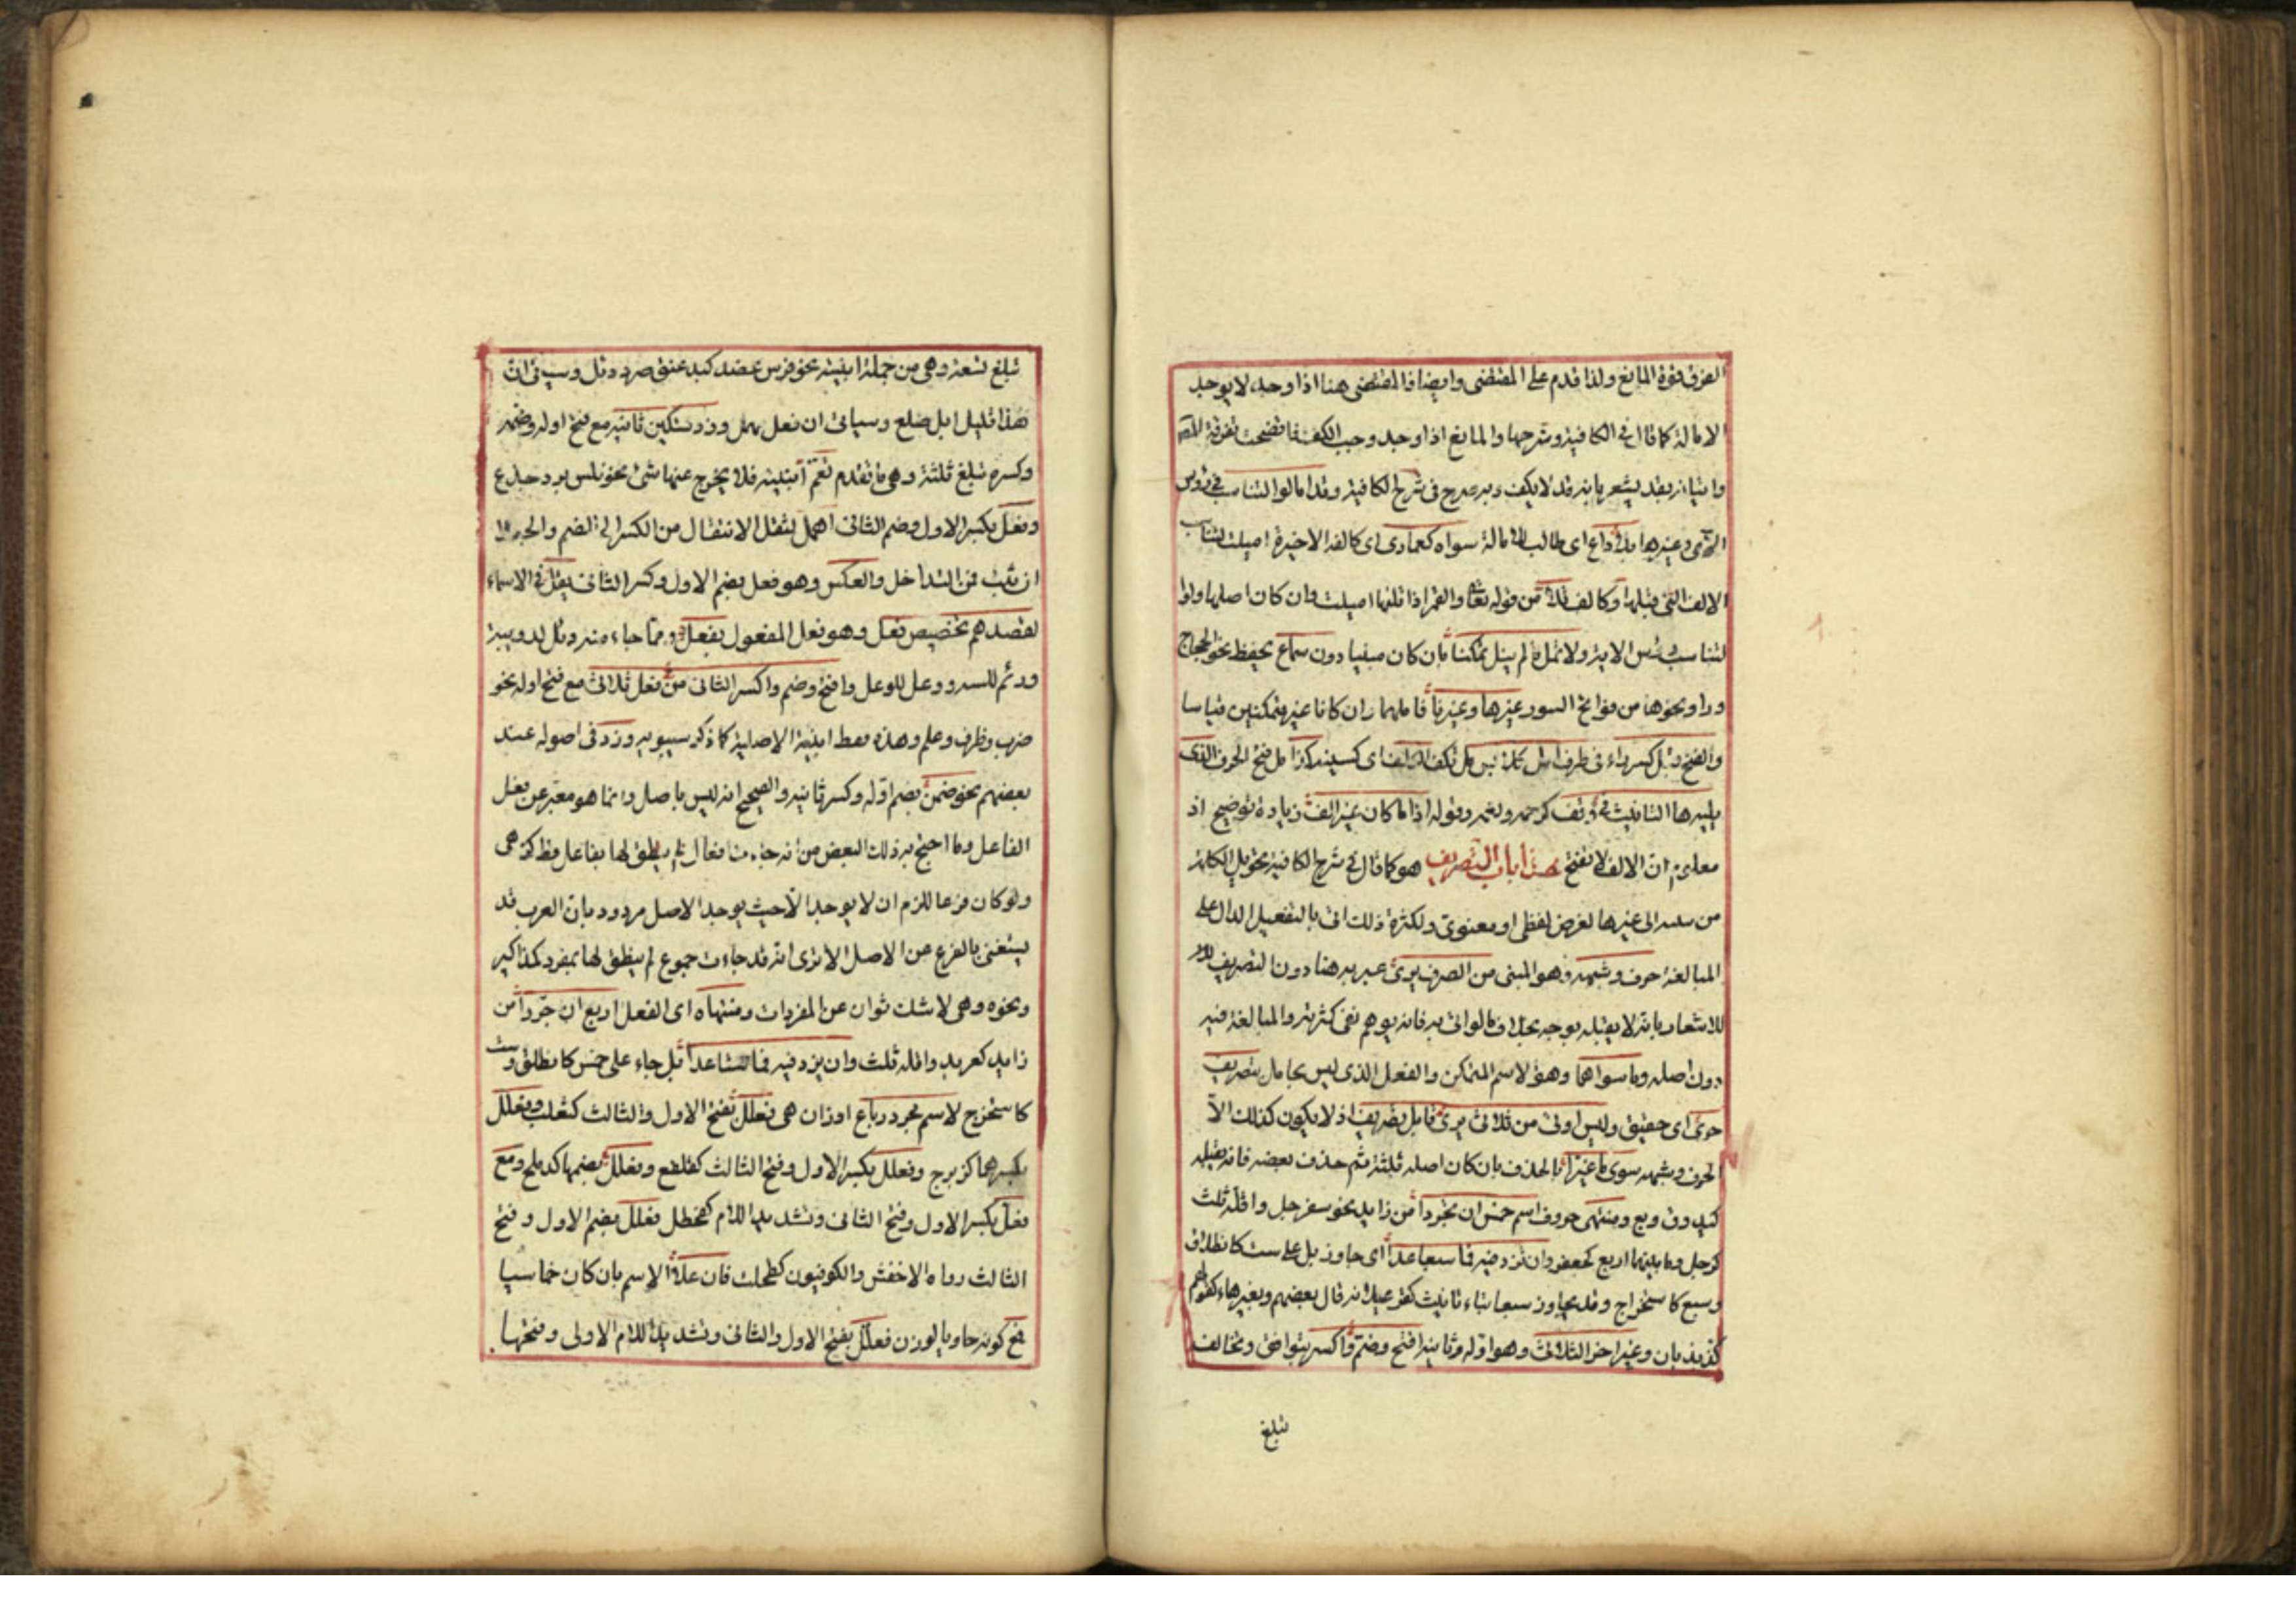 الفرق قوة المانع ولذا قدم على المقتضى وايضا فالمقتضى هنا اذا وجد لا يوجد
الامالة كما قال في الكافية وشرحها والمانع اذا وجد وجب الكف فاتضحت تفرقة المصـ
واتيانه بقد يشعر بانه قد لا يكف وبه صرح فى شرح الكافية وقد امالوا لتناسب فى رؤس
الآى وغيرها بلا داع اى طالب للامالة سواه كعمادى اى كالفه الاخيرة اميلت لتناسب
الالف التى قبلها وكالف تلا من قوله تعالى والقمر اذا تلاها اميلت وان كان اصلها واوا
لتناسب رؤس الاية ولا تمل ما لم ينل تمكنا بان كان مبنيا دون سماع يحفظ نحو الحجاج
ورا ونحوها من فواتح السور غيرها وغيرنا فاملهما وان كانا غير متمكنين قياسا
والفتح قبل كسر راء فى طرف امل كلايسر مل تكف الكلف اى كسينه كذا مل فتح الحرف الذى
يليه ها التانيث فى وقف كرحمه ونعمه وقوله اذا ما كان غير الف زيادة توضيح اذ
معلوم ان الالف لا تفتح هذا باب التصريف هو كما قال فى شرح الكافية تحويل الكلمة
من بنية الى غيرها لغرض لفظى او معنوى ولكثرة ذلك اتى بالتفعيل الدال على
المبالغة حرف وشبهه وهو المبنى من الصرف برى عبر به هنا دون التصريف
للاشعار بانه لا يقبله بوجه بخلاف ما لو اتى به فانه يوهم نفى كثرته والمبالغة فيه
دون اصله وما سواهما وهو الاسم المتمكن والفعل الذى ليس بجامد بتصريف
حرى اى حقيق وليس ادنى من ثلاثى يرى قابل تصريف اذ لا يكون كذلك الا
الحرف وشبهه سوى ما غيرا بالحذف بان كان اصله ثلثة ثم حذف بعضه فانه يقبله
كيد وق وبع ومنتهى حروف اسم خمس ان تجردا من زايد نحو سفرجل واقله ثلث
كرجل وما بينهما اربع كجعفر وان يزد فيه فما سبعا عدا اى جاوز بل على ست كانطلاق
وسبع كاستخراج وقد يجاوز سبعا بتاء تانيث كقرعبلانه قال بعضهم وبغيرها كقولهم
كذبذبان وغير اخر الثلاثى وهو اوله وثانيه افتح وضم واكسر بتوافق وتخالف
تبلغ
تبلغ تسعة وهى من جملة ابنيته نحو فرس عضد كبد عنق صرد دئل وسياتى ان
هذا قليل ابل ضلع وسياتى ان فعل مهمل وزد تسكين ثانيه مع فتح اوله وضمه
وكسره تبلغ ثلثة وهى ما تقدم تعم ابنيته فلا يخرج عنها شئ نحو فلس برد جذع
وفعل بكسر الاول وضم الثانى اهمل لثقل الانتقال من الكسر الى الضم والحبك
ان ثبت فمن التداخل والعكس وهو فعل بضم الاول وكسر الثانى يقل فى الاسماء
لقصدهم تخصيص فعل وهو فعل المفعول بفعل ومما جاء منه دئل لدويبة
ورئم للسه ووعل للوعل وافتح وضم واكسر الثانى من فعل ثلاثى مع فتح اوله نحو
ضرب وظرف وعلم وهذه فقط ابنية الاصلية كما ذكر سيبويه وزد فى اصوله عند
بعضهم نحو ضمن بضم اوله وكسر ثانيه والصحيح انه ليس باصل وانما هو مغير عن فعل
الفاعل وما احتج به ذلك البعض من انه جاءت افعال لم ينطق لها بفاعل قط كزهى
ولو كان فرعا للزم ان لا يوجد الا حيث يوجد الاصل مردود بان العرب قد
يستغنى بالفرع عن الاصل الا ترى انه قد جاءت جموع لم ينطق لها بمفرد كمذاكير
ونحوه وهى لا شك ثوان عن المفردات ومنتهاه اى الفعل اربع ان جردا من
زايد كعربد واقله ثلث وان يزد فيه فما ستا عدا بل جاء على خمس كانطلق وست
كاستخرج لاسم مجرد رباع اوزان هى فعلل بفتح الاول والثالث كثعلب وفعلل
بكسرهما كزبرج وفعلل بكسر الاول وفتح الثالث كقلفع وفعلل بضمهما كدملج ومع
فعل بكسر الاول وفتح الثانى وتشديد اللام كفحطل فعلل بضم الاول وفتح
الثالث رواه الاخفش والكوفيون كطحلب فان علا الاسم بان كان خماسيا
فمع كونه حاويا لوزن فعلل بفتح الاول والثانى وتشديد اللام الاولى وفتحها